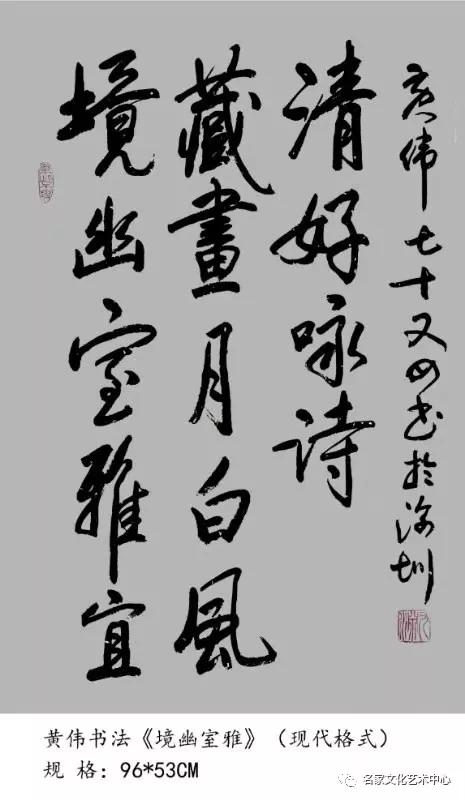 境幽室雅宜
藏畫月白風
清好咏诗
黄伟七十又四书於深圳
黄伟书法《境幽室雅》（现代格式）
规 格：96*53CM
名家文化艺术中心